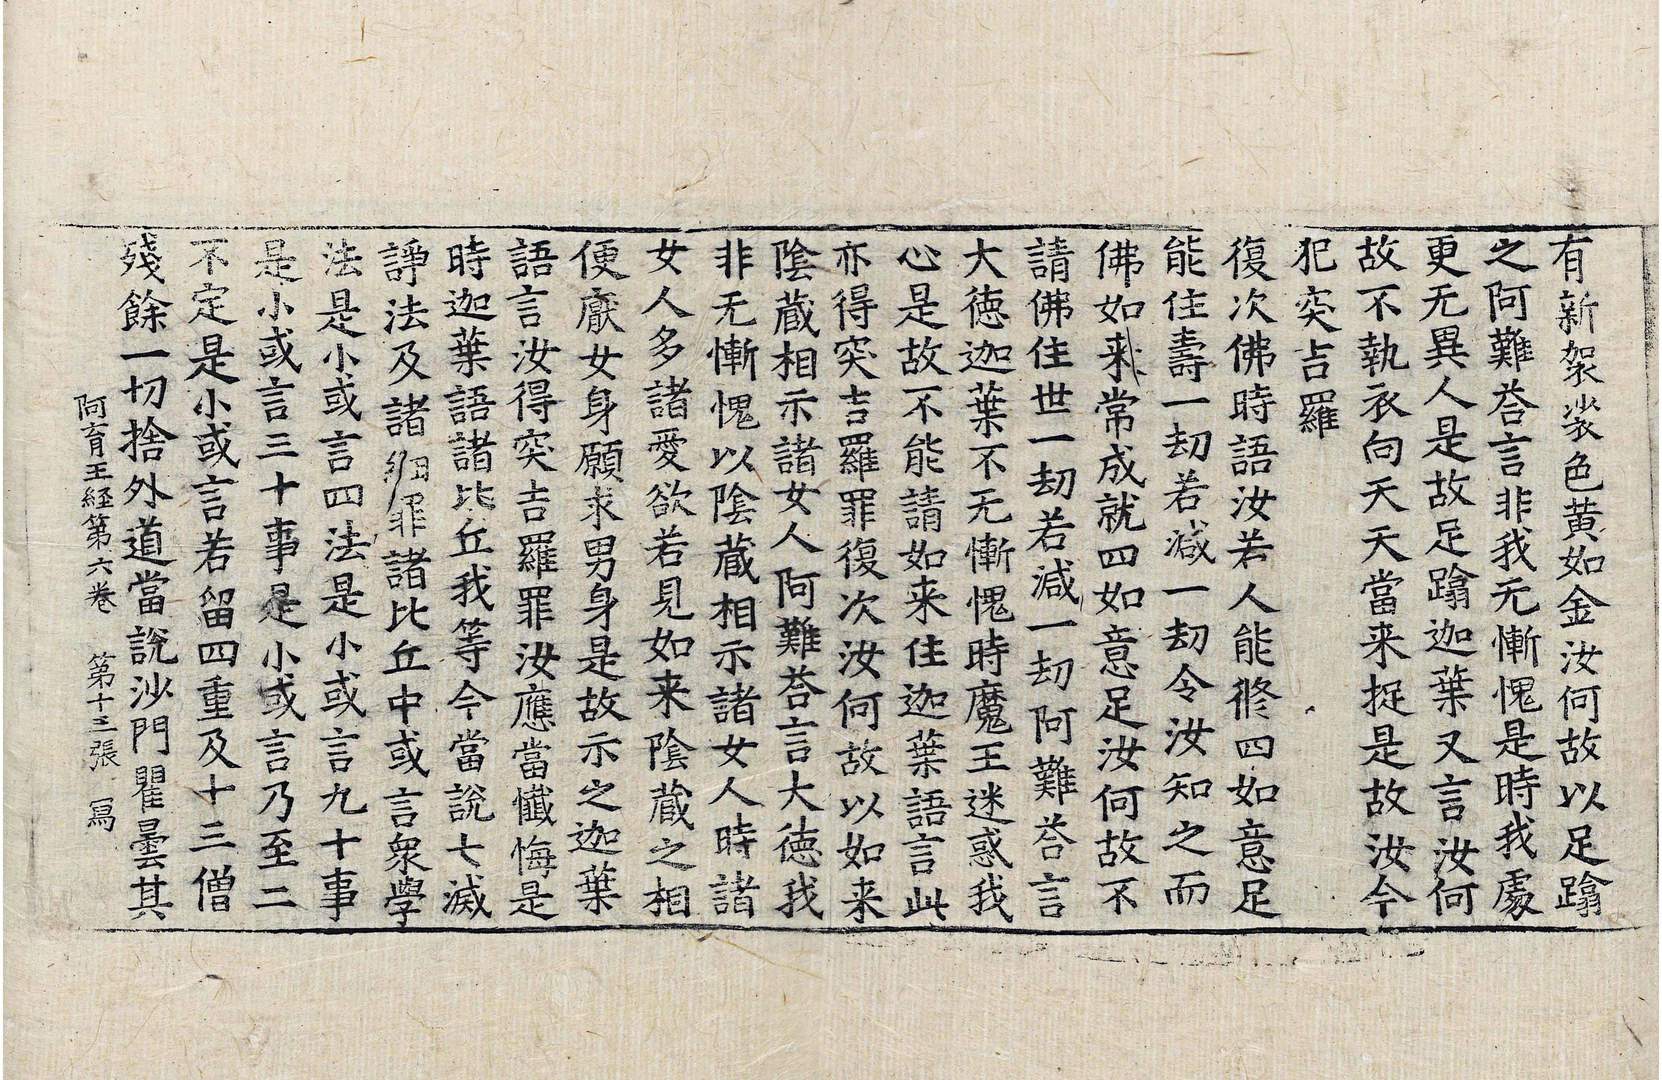 有新袈裟色黄如金汝何故以足蹹
之阿難荅言非我无慚愧是時我處
更无異人是故足蹹迦葉又言汝何
故不執衣向天天當来捉是故汝今
犯突吉羅
復次佛時語汝若人能修四如意足
能住壽一劫若減一劫令汝知之而
佛如来常成就四如意足汝何故不
請佛住世一劫若減一劫阿難荅言
大徳迦葉不无慚愧時魔王迷惑我
心是故不能請如来住迦葉語言此
亦得突吉羅罪復次汝何故以如来
陰蔵相示諸女人阿難荅言大徳我
非无慚愧以陰蔵相示諸女人時諸
女人多諸愛欲若見如来陰蔵之相
便厭女身願求男身是故示之迦葉
語言汝得突吉羅罪汝應當懺悔是
時迦葉語諸比丘我等今當說七滅
諍法及諸細罪諸比丘中或言衆學
法是小或言四法是小或言九十事
是小或言三十事是小或言乃至二
不定是小或言若留四重及十三僧
殘餘一切捨外道當說沙門瞿曇其
阿育王経第六卷 第十三張 冩